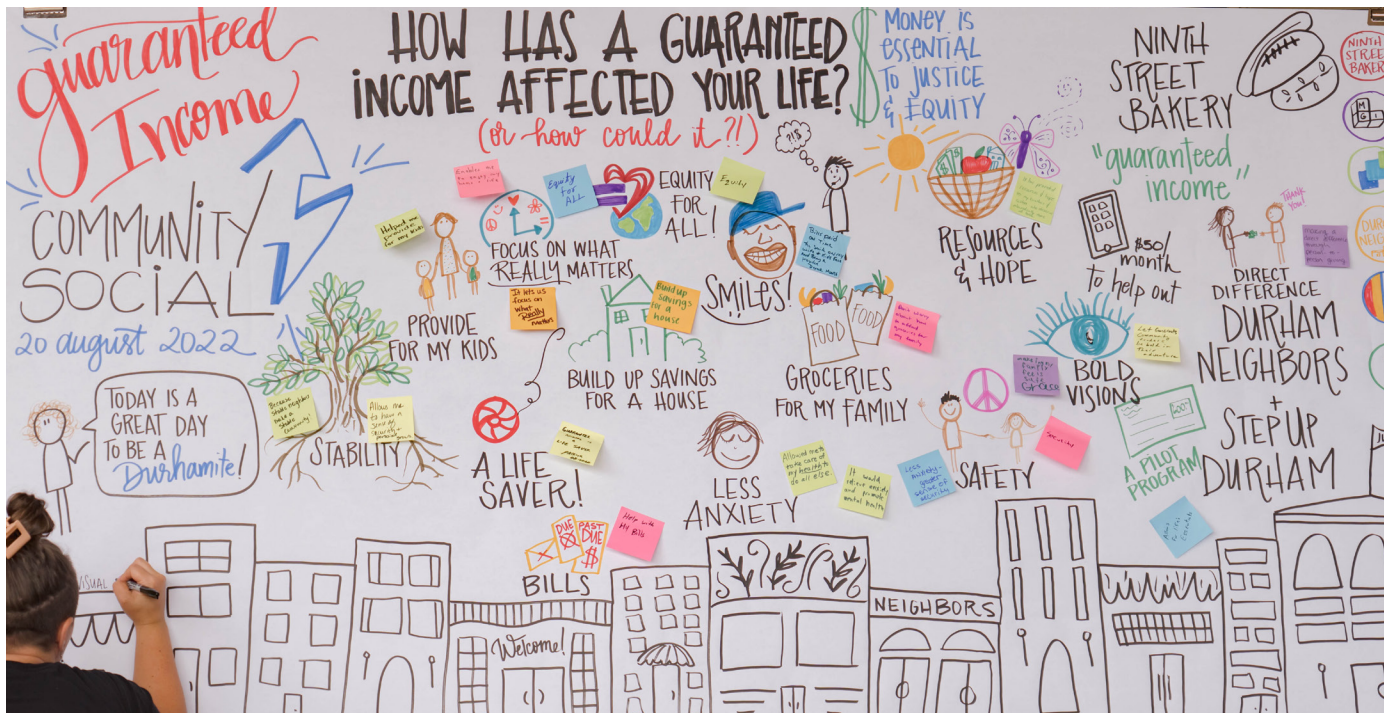 guaranteed
Income
COMMUNITY
SOCIAL
20 august 2022
TODAY IS A
GREAT DAY
TO BE A
Durhamite!
HOW HAS A GUARANTEED
INCOME AFFECTED YOUR LIFE?
(or how could it?!)
$
MONEY IS
ESSENTIAL
TO JUSTICE
& EQUITY
NINTH
STREET
BAKERY
"guaranteed
income"
NINTH
STREET
BAKERY
$50/
month
to help out
THANK
YOU!
DIRECT
DIFFERENCE
DURHAM
NEIGHBORS
+
STEP UP
DURHAM
?!$
Equity
for
ALL
EQUITY
FOR
ALL!
Equity
FOCUS ON WHAT
REALLY MATTERS
It lets us
focus on
what
Really
matters
PROVIDE
FOR MY KIDS
SMILES!
RESOURCES
& HOPE
Build up
savings
for a
house
BUILD UP SAVINGS
FOR A HOUSE
FOOD
FOOD
GROCERIES
FOR MY FAMILY
BOLD
VISIONS
STABILITY
A LIFE
SAVER!
LESS
ANXIETY
Allowed me to
take care of
my health to
do all else
It would
relieve anxiety
and promote
mental health
Less
Anxiety-
greater
sense of
security
SAFETY
Security
A PILOT
PROGRAM
DUE
PAST
DUE
$
Help with
My Bills
BILLS
VISUAL
Welcome!
NEIGHBORS